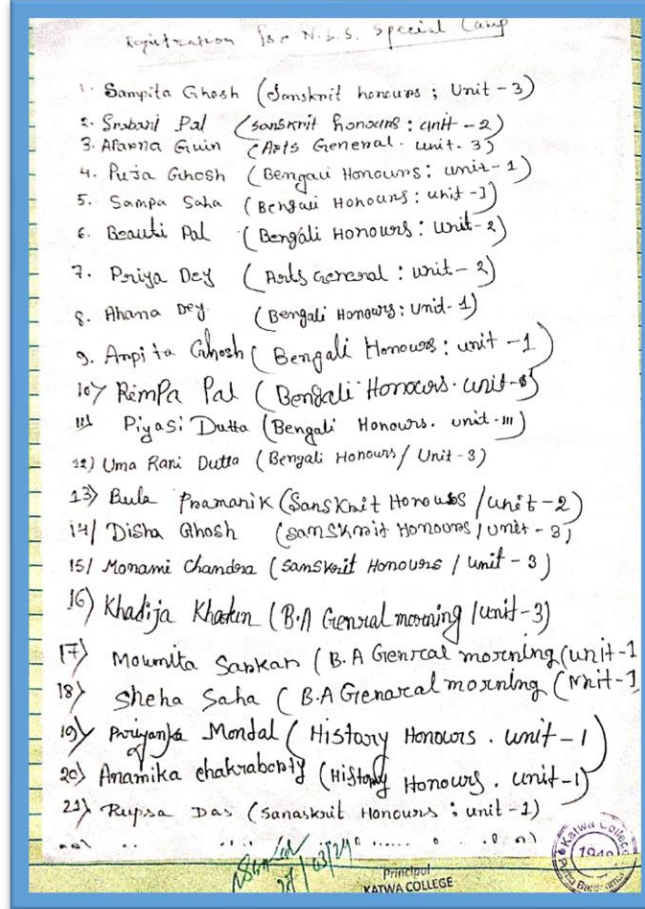 Registration for N.S.S. Special Camp
1. Sampita Ghosh (Sanskrit honours ; Unit - 3)
2. Srabani Pal (Sanskrit honours : unit - 2)
3. Aparna Guin (Arts General. unit. 3)
4. Puja Ghosh (Bengali Honours: unit - 1)
5. Sampa Saha (Bengali Honours: unit - 1)
6. Beauti Pal (Bengali Honours : unit - 2)
7. Priya Dey (Arts General : unit - 2)
8. Ahana Dey (Bengali Honours: Unit - 1)
9. Arpita Ghosh (Bengali Honours: unit - 1)
10) Rimpa Pal (Bengali Honours. unit -
11) Piyasi Dutta (Bengali Honours. unit - III)
12) Uma Rani Dutta (Bengali Honours / Unit - 3)
13) Bula Pramanik (Sanskrit Honours / unit - 2)
14/ Disha Ghosh (Sanskrit Honours / unit - 3)
15/ Monami Chandra (Sanskrit Honours / unit - 3)
16) Khadija Khatun (B.A Genral morning / unit - 3)
17) Moumita Sarkar (B.A Genreal morning (unit - 1
18) Sneha Saha (B.A Genaral morning (unit - 1
19) Priyanka Mondal (History Honours. unit - 1)
20) Anamika Chakraborty (History Honours. unit - 1)
21) Rupsa Das (Sanaskrit Honours ; unit - 1)
Principal
KATWA COLLEGE
Katwa College